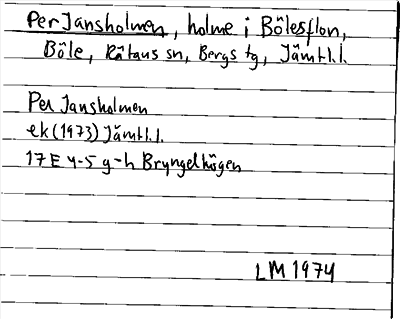 Per Jansholmen, holme i Bölesflon,
Böle, Rätans sn, Bergs tg, Jämtl.l.
Per Jansholmen
ek (1973) Jämtl.l.
17E 4-5 g-h Bryngelhögen
LM 1974